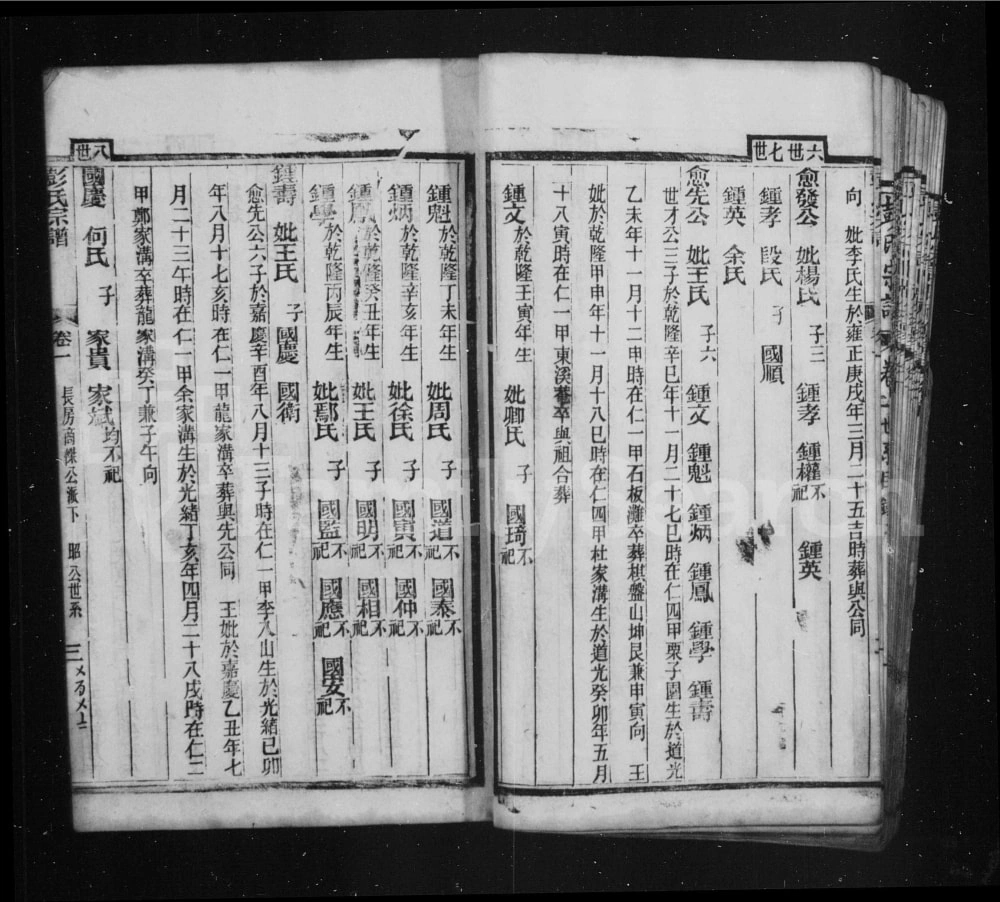 六世七世
向 妣李氏生於雍正庚戌年三月二十五吉時葬與公同
愈發公 妣楊氏 子三 鍾孝 鍾權不祀 鍾英
鍾孝 段氏 子 國順
鍾英 余氏
愈先公 妣王氏 子六 鍾文 鍾魁 鍾炳 鍾鳳 鍾學 鍾壽
世才公三子於乾隆辛巳年十一月二十七巳時在仁四甲栗子園生於道光
乙未年十一月十二申時在仁一甲石板灘卒葬棋盤山坤艮兼申寅向 王
妣於乾隆甲申年十一月十八巳時在仁四甲杜家溝生於道光癸卯年五月
十八寅時在仁一甲東溪菴卒與祖合葬
鍾文於乾隆壬寅年生 妣卿氏 子 國琦不祀
鍾魁於乾隆丁未年生 妣周氏 子 國道不祀 國泰不祀
鍾炳於乾隆辛亥年生 妣徐氏 子 國寅不祀 國仲不祀
鍾鳳於乾隆癸丑年生 妣王氏 子 國明不祀 國相不祀
鍾學於乾隆丙辰年生 妣鄢氏 子 國監不祀 國應不祀 國安不祀
鍾壽 妣王氏 子 國慶 國衛
愈先公六子於嘉慶辛酉年八月十三子時在仁一甲李八山生於光緒己卯
年八月十七亥時在仁一甲龍家溝卒葬與先公同 王妣於嘉慶乙丑年七
月二十三午時在仁一甲余家溝生於光緒丁亥年四月二十八戌時在仁二
甲鄭家溝卒葬龍家溝癸丁兼子午向
八世
國慶 何氏 子 家貴 家斌均不祀
彭氏宗譜 卷一 長房商傑公派下 昭公世系 三